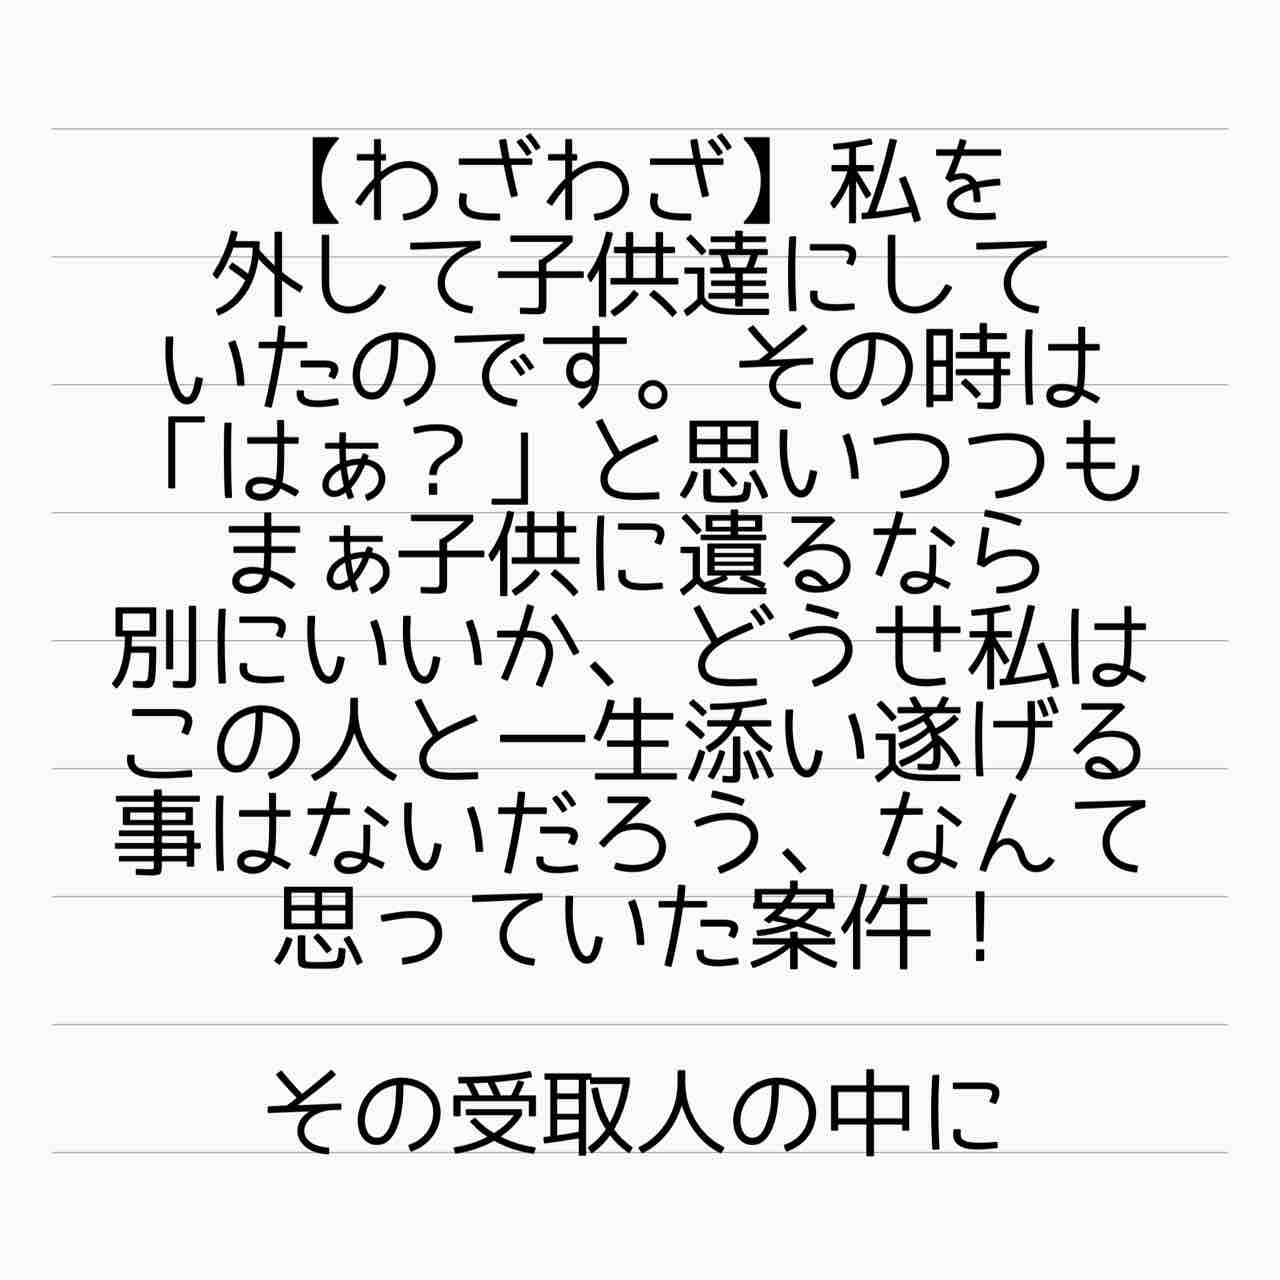 【わざわざ】私を
外して子供達にして
いたのです。その時は
「はぁ？」と思いつつも
まぁ子供に遺るなら
別にいいか、どうせ私は
この人と一生添い遂げる
事はないだろう、なんて
思っていた案件！
その受取人の中に